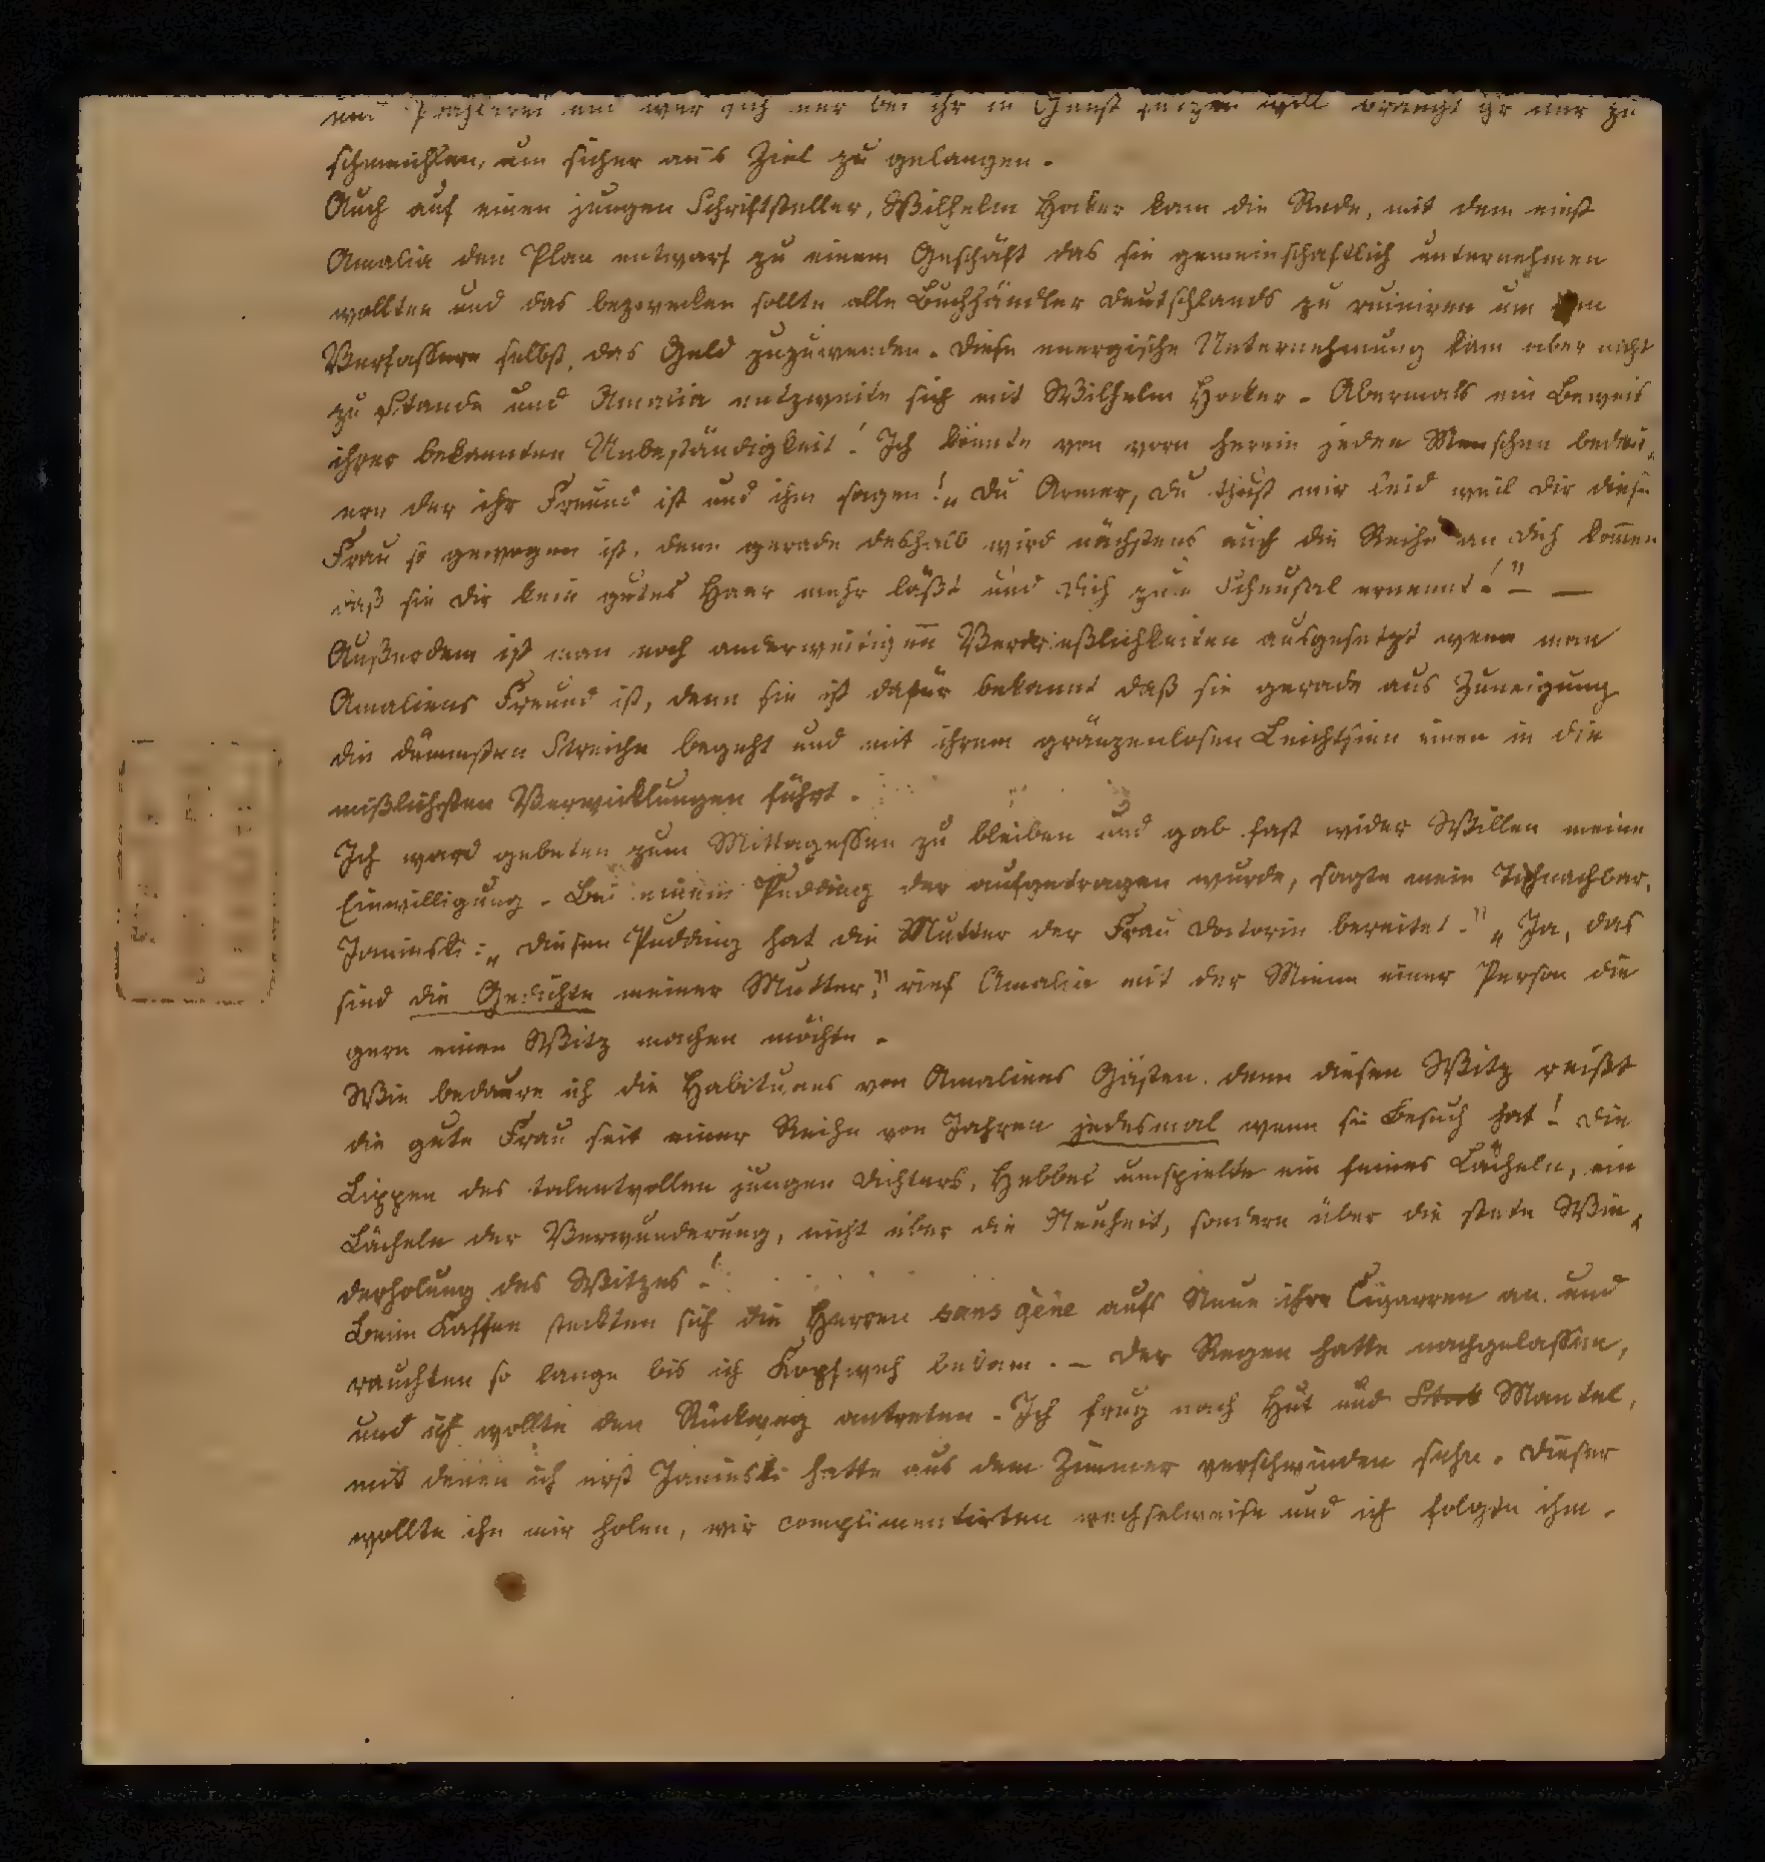 und wer sich nur bei ihr in Gunst setzen will braucht ihr nur zu
schmeichlen, um sicher ans Ziel zu gelangen.
Auch auf einen jungen Schriftsteller, Wilhelm Hocker kam die Rede, mit dem einst
Amalia den Plan entwarf zu einem Geschäft das sie gemeinschaftlich unternehmen
wollten und das bezwecken sollte alle Buchhändler Deutschlands zu ruiniren um den
Verfassern selbst, das Geld zuzuwenden. Diese energische Unternehmung kam aber nicht
zu Stande und Amalia entzweite sich mit Wilhelm Hocker. Abermals ein Beweis
ihrer bekannten Unbeständigkeit! Ich könnte von vorn herein jeden Menschen bedau-
ern der ihr Freund ist und ihm sagen! „Du Armer, du thust mir leid weil dir diese
Frau so gewogen ist, denn gerade deshalb wird nächstens auch die Reihe an dich kom̄en
daß sie dir kein gutes Haar mehr läßt und dich zum Scheusal ernennt!" — —
Außerdem ist man noch anderweitigen Verdrießlichkeiten ausgesetzt wenn man
Amaliens Freund ist, denn sie ist dafür bekannt daß sie gerade aus Zuneigung
die dümmsten Streiche begeht und mit ihrem gränzenlosen Leichtsinn einen in die
mißlichsten Verwicklungen führt.
Ich ward gebeten zum Mittagessen zu bleiben und gab fast wider Willen meine
Einwilligung. Bei einem Pudding der aufgetragen wurde, sagte mein Tischnachbar,
Janinski: „Diesen Pudding hat die Mutter der Frau Doctorin bereitet." „Ja, das
sind die Gedichte meiner Mutter," rief Amalie mit der Miene einer Person die
gern einen Witz machen möchte.
Wie bedaure ich die Habituees von Amaliens Gästen, denn diesen Witz reißt
die gute Frau seit einer Reihe von Jahren jedesmal wenn sie Besuch hat! Die
Lippen des talentvollen jungen Dichters, Hebbel umspielte ein feines Lächeln, ein
Lächeln der Verwunderung, nicht über die Neuheit, sondern über die stete Wie-
derholung des Witzes!
Beim Kaffee steckten sich die Herren sans gêne aufs Neue ihre Cigarren an und
rauchten so lange bis ich Kopfweh bekam. — Der Regen hatte nachgelassen,
und ich wollte den Rückweg antreten. Ich frug nach Hut und Stock Mantel,
mit denen ich erst Janinski hatte aus dem Zimmer verschwinden sehn. Dieser
wollte ihn mir holen, wir complimentirten wechselweise und ich folgte ihm.